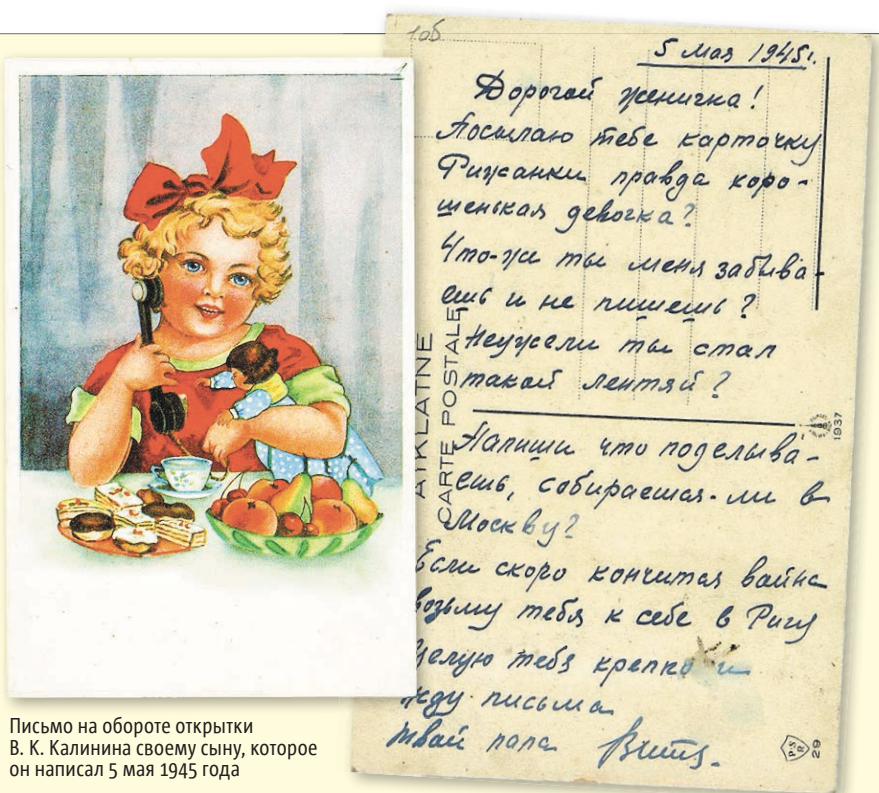 105
5 мая 1945г.
Дорогой женичка!
Посылаю тебе карточку
Рижанки правда хоро-
шенькая девочка?
Что-же ты меня забыва-
ешь и не пишешь?
Неужели ты стал
такой лентяй?
Напиши что поделыва-
ешь, собираешся-ли в
Москву?
Если скоро кончится война
возьму тебя к себе в Ригу
Целую тебя крепко и
жду письма
Твой папа Витя.
ATKLATNE
CARTE POSTALE
1937
PSR
29
Письмо на обороте открытки
В. К. Калинина своему сыну, которое
он написал 5 мая 1945 года